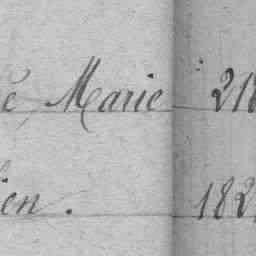 é, Marie 218
ien. 182